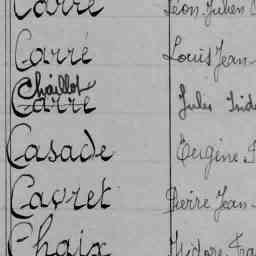 Carré Léon Julien
Carré Louis Jean
Chaillot
Carré Jules
Casade Eugène
Cavret Pierre Jean
Chaix Isidore